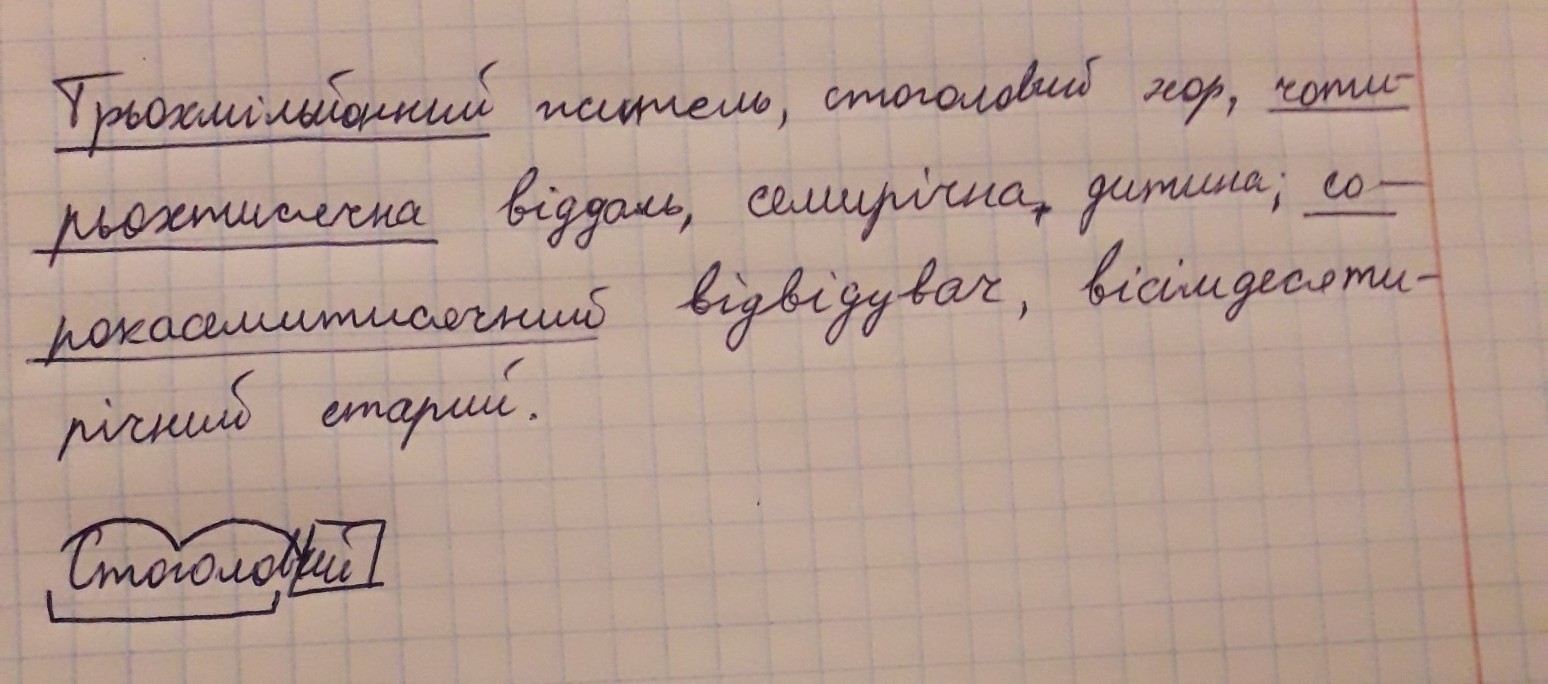 Трьохмільйонний житель, стоголовий хор, чоти-
рьохтисячна віддаль, семирічна дитина; со-
рокасемитисячний відвідувач, вісімдесяти-
річний старий.
Стоголовий